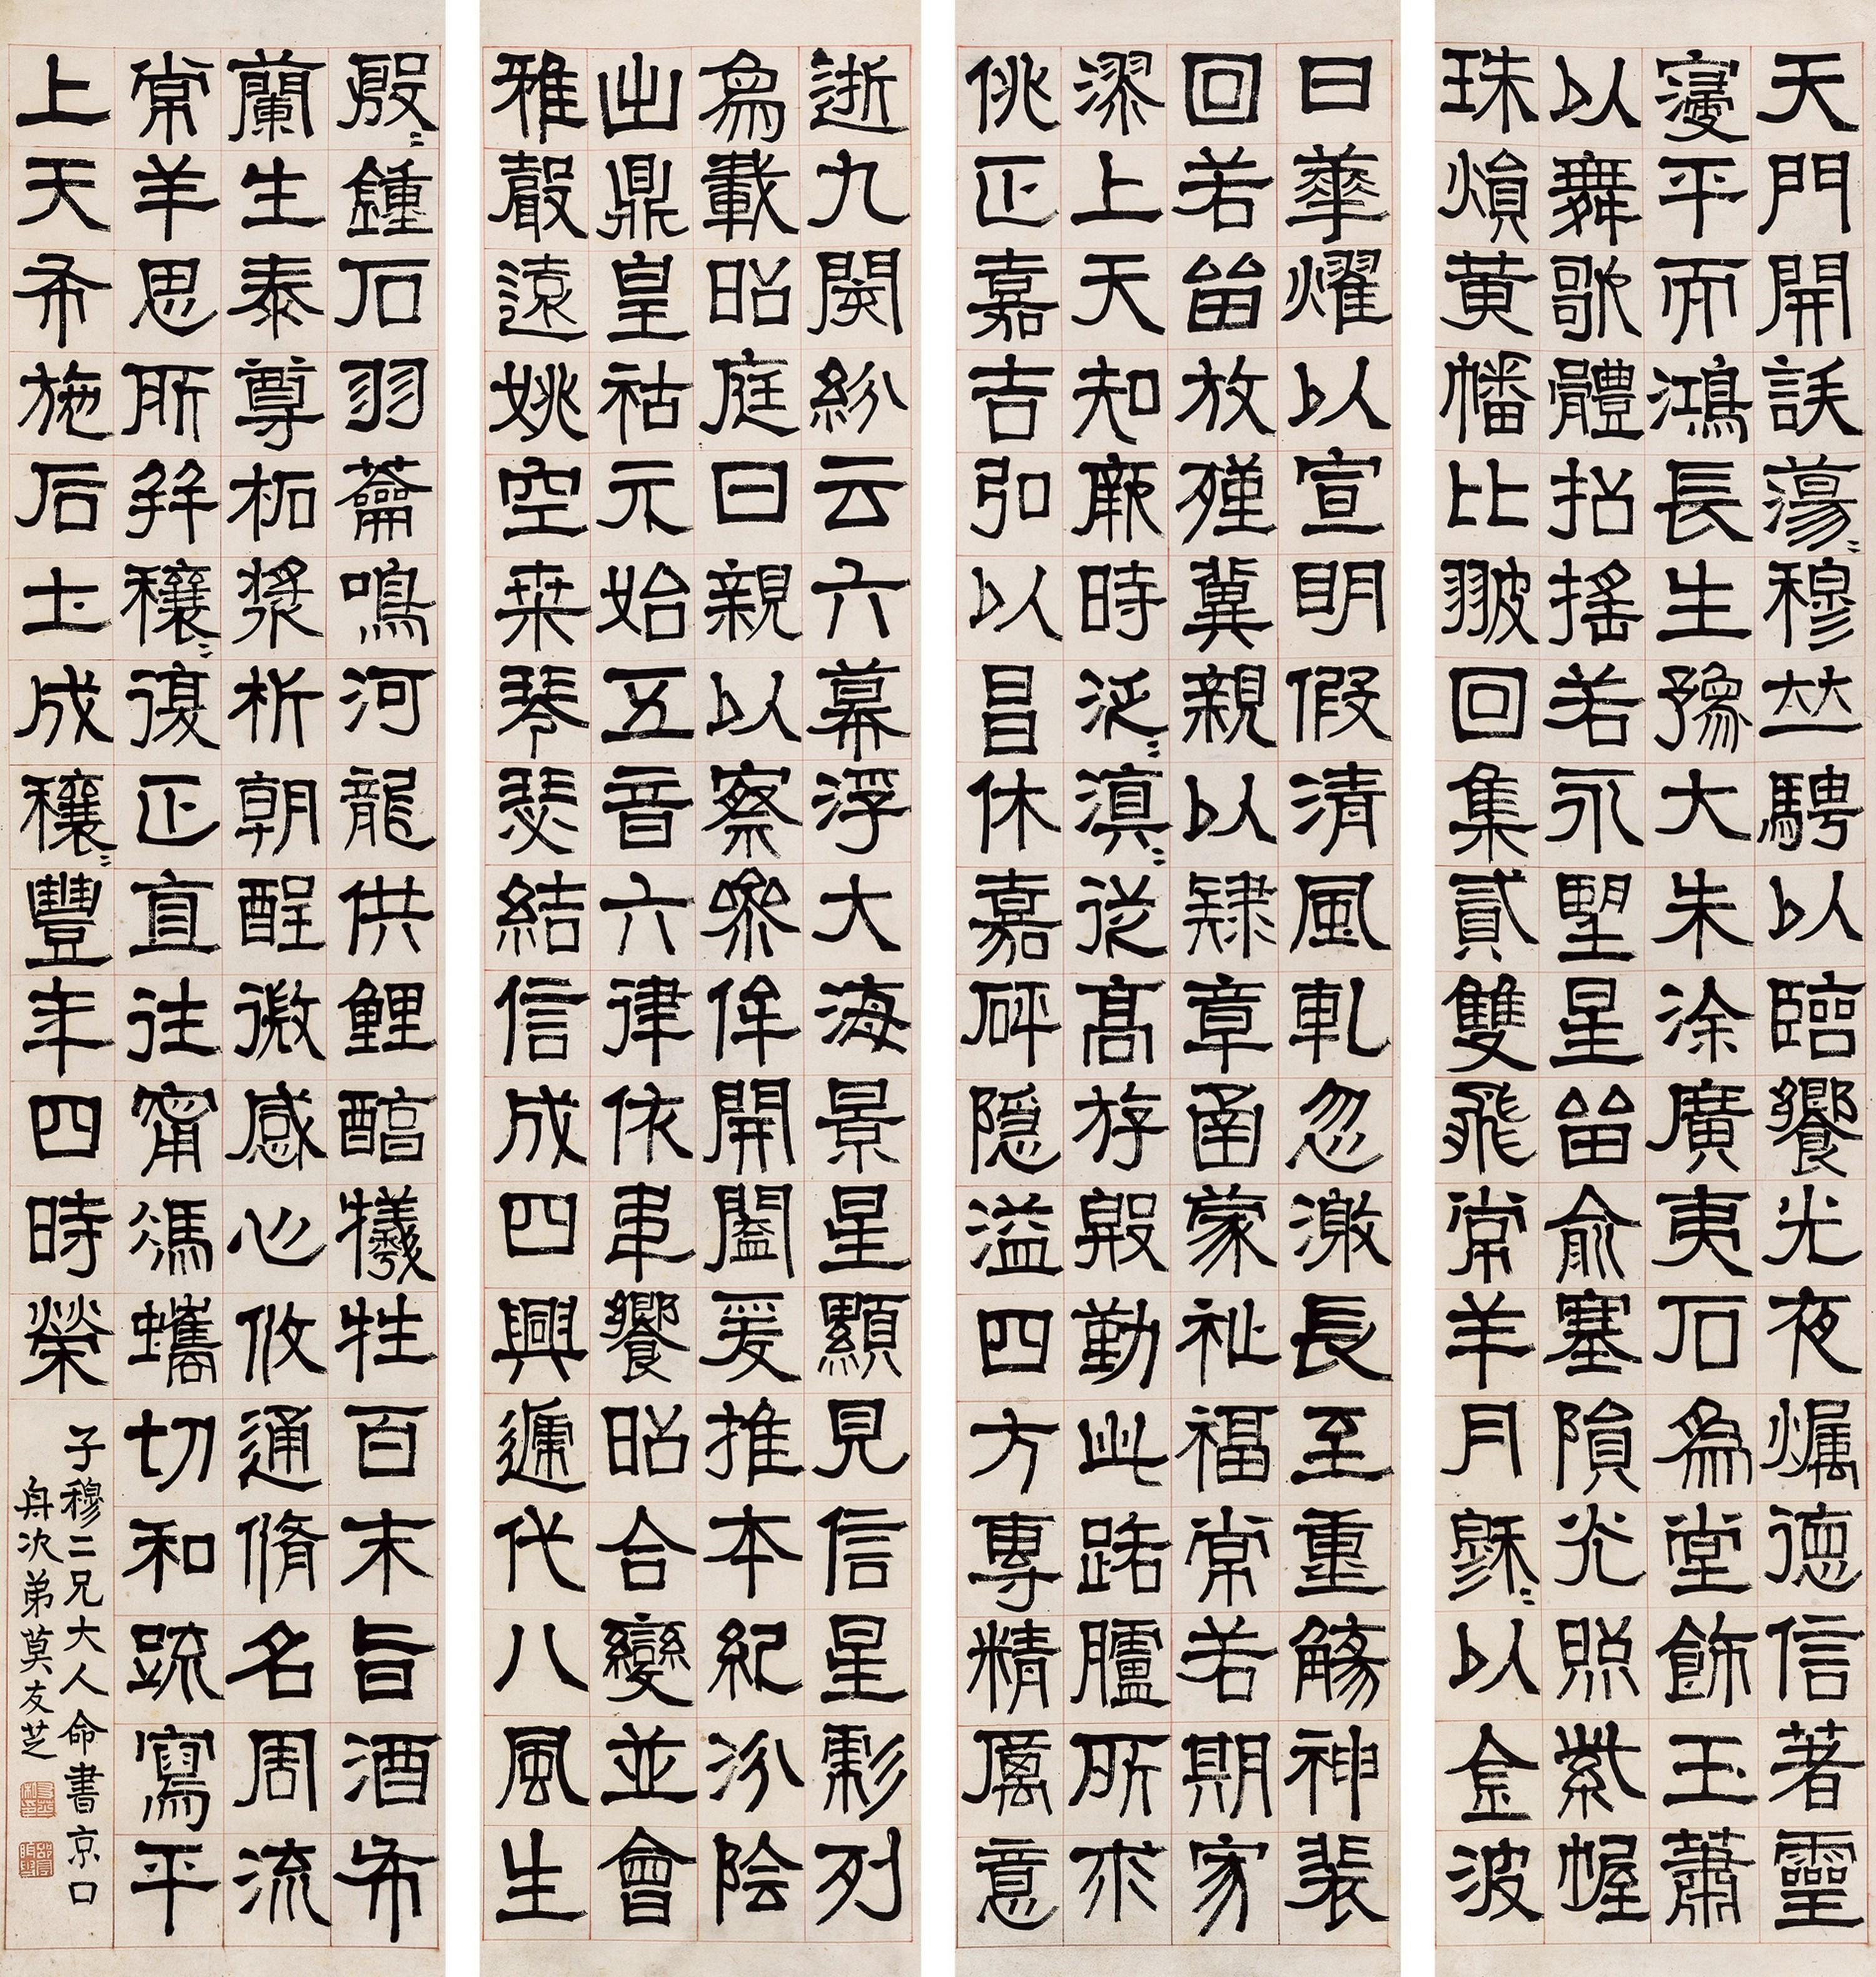 天門開詄蕩〻穆並騁以臨饗光夜爥德信著靈
寖平而鴻長生豫大朱涂廣夷石為堂飾玉蕭
以舞歌體招搖若永望星留俞塞隕光照紫幄
珠熉黄幡比翄回集貳雙飛常羊月穆〻以金波
日華燿以宣明假清風軋忽激長至重觴神裴
回若留放殣冀親以肆章函蒙祉福常若期㝌
漻上天知厥時泛〻滇〻從高斿殷勤此路臚所求
佻正嘉吉弘以昌休嘉砰隱溢四方專精厲意
逝九閡紛云六幕浮大海景星顯見信星彪列
為載昭庭日親以察參侔開闔爰推本紀汾陰
出鼎皇祜元始五音六律依韋饗昭合變並會
雅聲遠姚空桑琴瑟結信成四興遞代八風生
殷〻鍾石羽籥鳴河龍供鯉醇犧牲百末旨酒布
蘭生泰尊柘漿析朝酲微感心攸通脩名周流
常羊思所并穰〻復正直往甯馮蠵切和疏寫平
上天布施后土成穰〻豐年四時榮
子穆二兄大人命書京口
舟次弟莫友芝